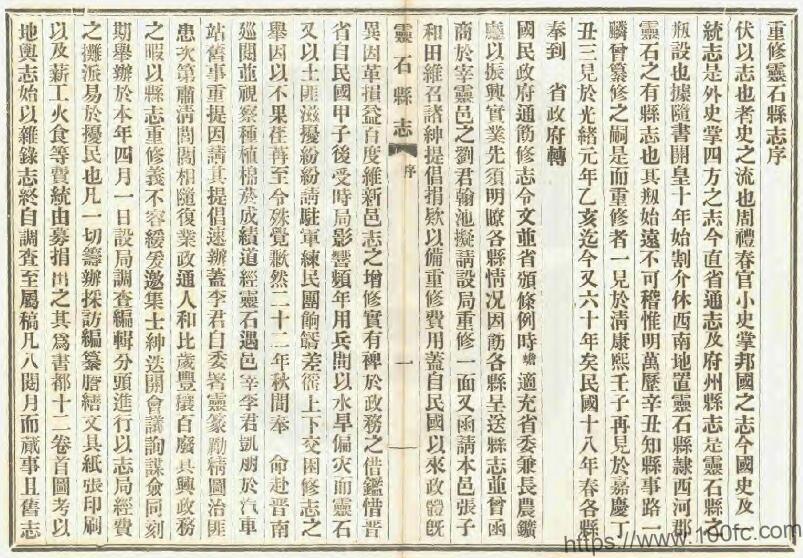 重修靈石縣志序
伏以志也者史之流也周禮春官小史掌邦國之志今國史及一
統志是外史掌四方之志今直省通志及府州縣志是靈石縣之
㼝設也據隨書開皇十年始割介休西南地置靈石縣隸西河郡
靈石之有縣志也其㼝始遠不可稽惟明萬歷辛丑知縣事路一
麟曾纂修之嗣是而重修者一見於清康熙壬子再見於嘉慶丁
丑三見於光緒元年乙亥迄今又六十年矣民國十八年春各縣
奉到 省政府轉
國民政府通飭修志令文並省頒條例時 適充省委兼長農鑛
廳以振興實業先須明瞭各縣情况因飭各縣呈送縣志並曾函
商於宰靈邑之劉君翰池擬請設局重修一面又函請本邑張子
和田維召諸紳提倡捐欵以備重修費用蓋自民國以來政體既
靈石縣志 序 一
異因革損益百度維新邑志之增修實有裨於政務之借鑑惜晋
省自民國甲子後受時局影響頻年用兵間以水旱偏灾而靈石
又以土匪滋擾紛紛請駐軍練民團餉糈差徭上下交困修志之
舉因以不果荏苒至今殊覺歉然二十二年秋間奉 命赴晋南
巡閱並視察種植棉菸成績道經靈石遇邑宰李君凱朋於汽車
站舊事重提因請其提倡速辦蓋李君自委署靈篆勵精圖治匪
患次第肅清閭閻相隨復業政通人和比歲豐穰百廢具興政務
之暇以縣志重修義不容緩爰邀集士紳迭開會議詢謀僉同刻
期舉辦於本年四月一日設局調查編輯分頭進行以志局經費
之攤派易於擾民也凡一切籌辦採訪編纂謄繕文具紙張印刷
以及薪工火食等費統由募捐出之其為書都十二卷首圖考以
地輿志始以雜錄志終自調查至屬稿凡八閱月而蕆事且舊志
https://www.100fc.com